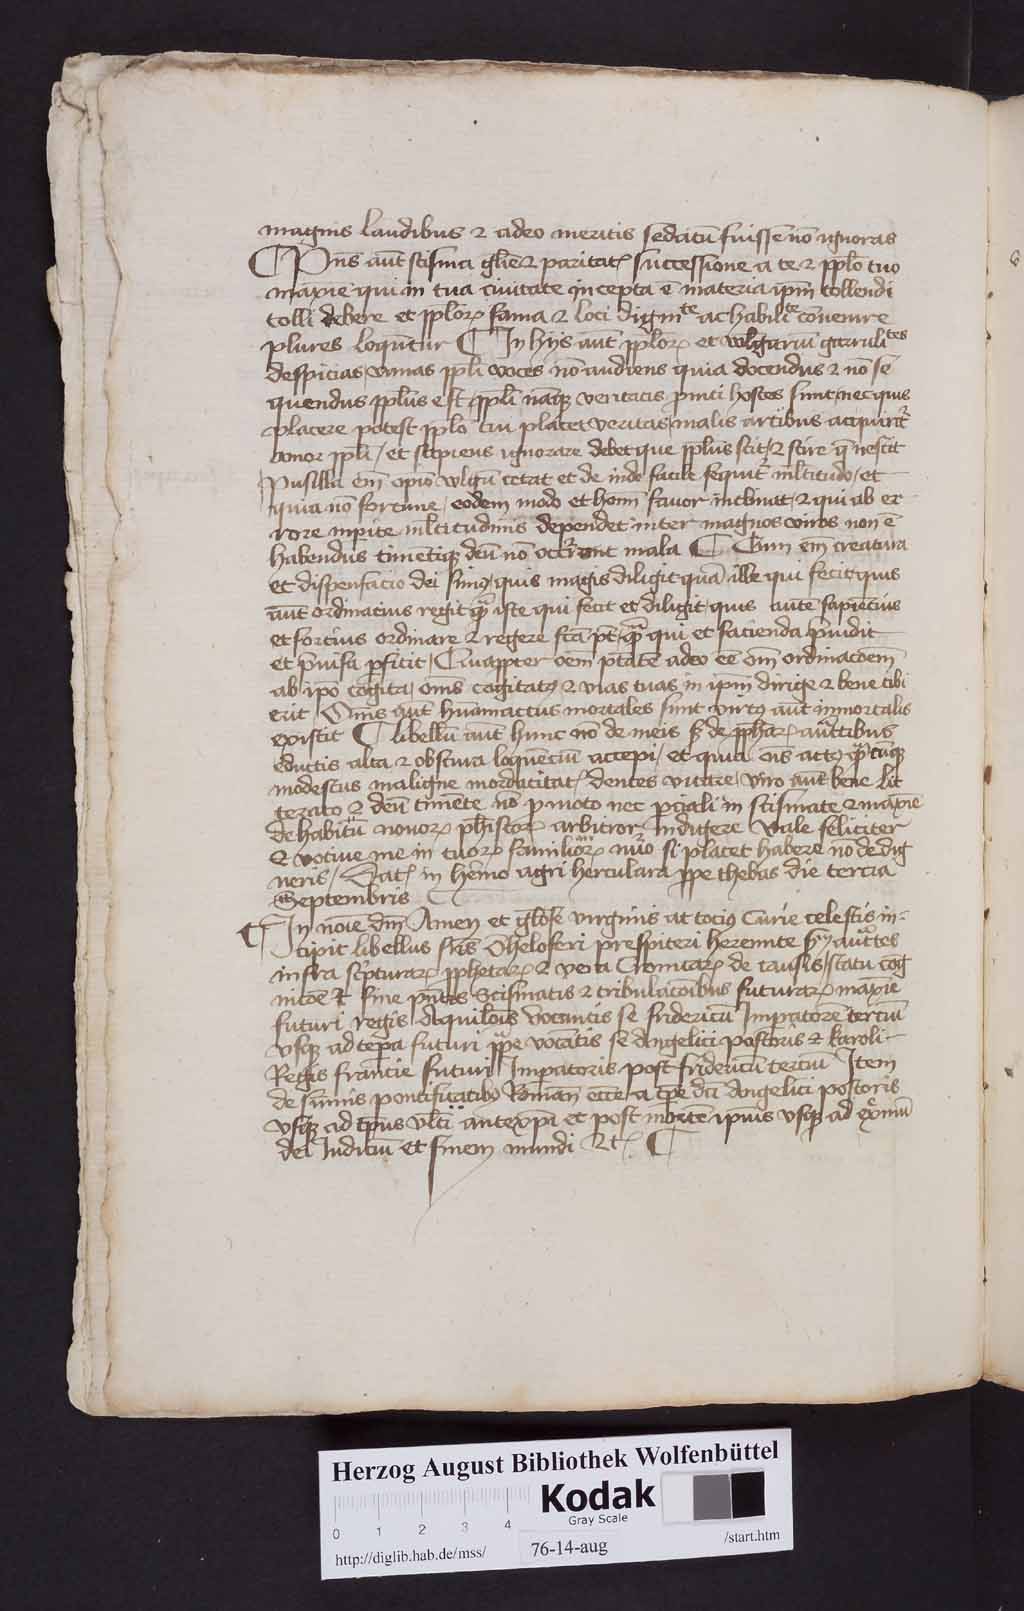 magnis laudibus ⁊ adeo meritis sedatū fuisse nō ignoras
Pn̄s aūt scisma glīe ⁊ paritatꝭ successione a te ⁊ pp̄lo tuo
maxīe qui in tua ciuitate incepta ē materia ip̄m tollendi
tolli debere et pp̄loꝝ fama ⁊ loci dignite ac habilite conuenire
plures loquūtur In hijs aūt pp̄loꝝ et vulgariū garrulites
despicias vanas pp̄li voces nō audiens quia docendus ⁊ nō se
quendus pp̄lus est pp̄li nāqꝫ veritatis hostes sunt nec quis
placere potest pp̄lo cui placet veritas malis artibus acquirit᷑
amor pp̄li / et sapiens ignorare debet que pp̄lus scit / ⁊ scire q̄ nescit
Pusilla em̄ opīo vlgū cecat et de inde facile sequit᷑ ml̄titudo / et
quia nō fortune / eodem modo et homī fauor inclinat / ⁊ qui ab er
rore impite ml̄titudinis dependet inter magnos viros non ē
habendus timetiqꝫ deū nō occurrent mala Cum em̄ creatura
et dispensacio dei simꝰ / quis magis diligit quā ille qui fecit quis
aūt ordinacius regit qͣ iste qui fecit et diligit / quis autē sapiēcius
et forcius ordinare ⁊ regere fcā pt̄ qͣ qui et facienda p̄uidit
et p̄uisa perficit / Quapp̱ter oēm ptātē adeo eē om̄ ordinacōem
ab ip̄o cogita / om̄s cogitatꝰ ⁊ vias tuas in ip̄m dirige ⁊ bene tibi
erit Om̄s aūt humi actus mortales sunt virtꝰ aūt inmortalis
existit libellū aūt hunc nō de meis sꝫ de pp̄hāꝝ auctībus
eductis alta ⁊ obscura loquenciū accepi / et quia
modestus maligne mordacitatꝭ dentes vitare / viro aūt bene lit
terato ⁊ deū timēte nō pͥuato nec perciali in scismate ⁊ maxīe
de habitū nouoꝝ phistoꝝ arbitror indigere Vale feliciter
⁊ votiue me in tuoꝝ familiarioꝝ nūo si placet habere nō dedig
neris / Datꝭ in h̄emo agri herculara ꝓpe thebas die tercia
Septembris
In noīe dn̄i Amen et gl̄ose virginis ac tociꝰ Curie celestis in-
cipit libellus frīs Theloferi presbiteri heremite auctōtes
infra sc̄pturaꝝ pp̄hetaꝝ ⁊ vera Cronicaꝝ de causis / statu cog
nicōe ⁊ fine pn̄tis Scismatis ⁊ tribulacōibus futuraꝝ maxīe
futuri regis Aquilōis vocantis se fridericū Impatorē terciū
vsqꝫ ad tēpa futuri ppe vocātis se Angelici pastoris ⁊ karoli
Regis francie futuri Impatoris post fridericū terciū Item
de sūmis pontificatibꝰ Romāe ecc̄e a tꝑe dci Angelici pastoris
vsqꝫ ad tp̄us vlti antexp̄i et post mortē ipius vsqꝫ ad extremū
dei Iudiciū et finem mundi ⁊cꝭ
Herzog August Bibliothek Wolfenbüttel
Kodak
Gray Scale
0 1 2 3 4
http://diglib.hab.de/mss/ 76-14-aug /start.htm